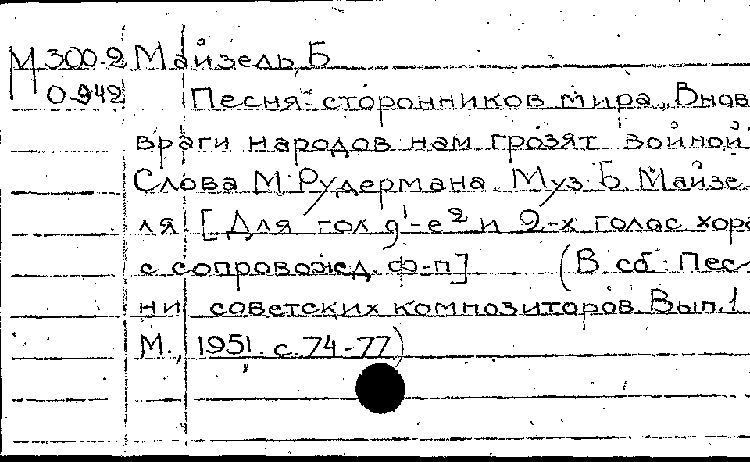 М 300-2 Майзель, Б
О-942 Песня сторонников мира. „Внов
враги народов нам грозят войной
Слова М. Рудермана. Муз. Б. Майзе-
ля [Для гол d¹-e² и 2-х голос хора
с сопровожд. ф-п] (В сб. Пес-
ни советских композиторов. Вып. 1
М., 1951. с. 74-77)